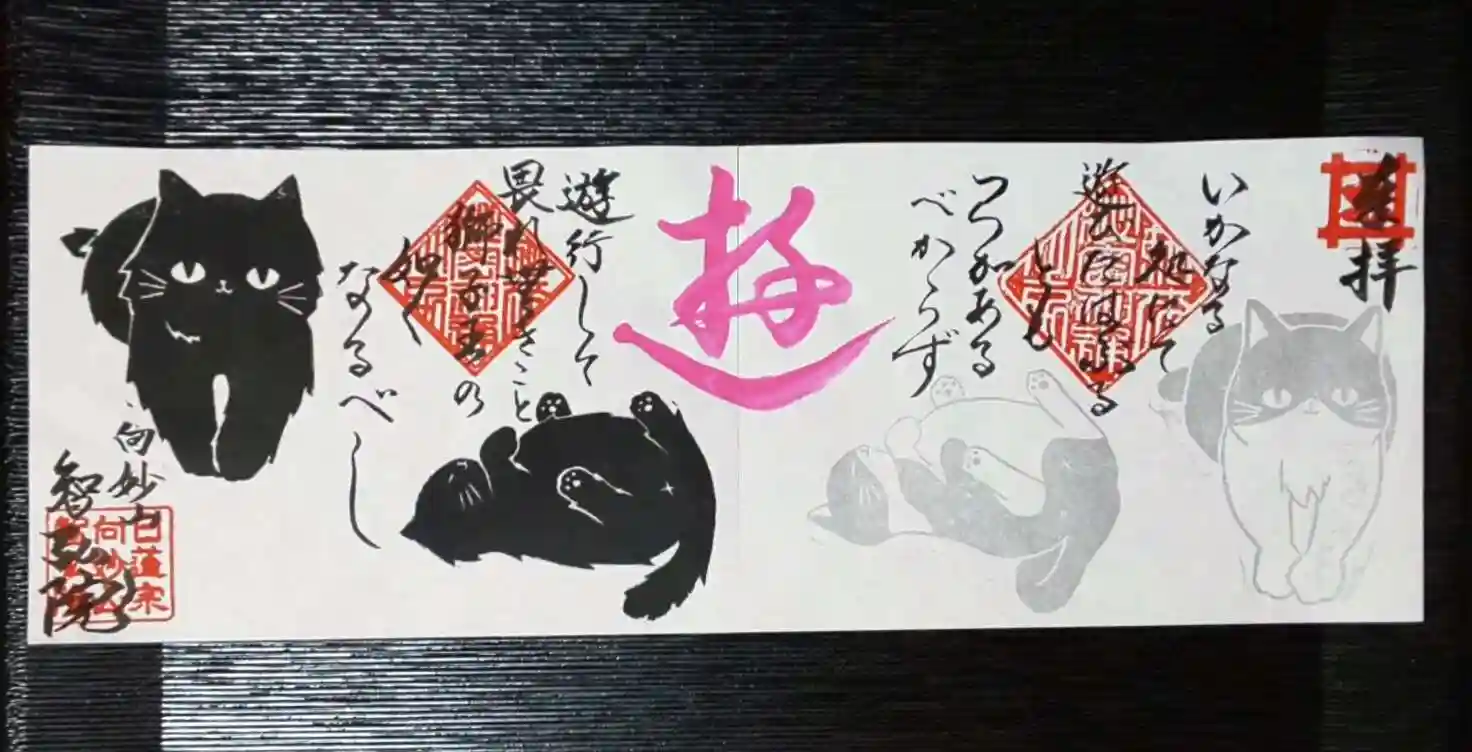 奉拝
いかなる
処にて
遊びたはふる
とも
つつがある
べからず
遊
遊行して
畏れ無きこと
獅子王の
如く
なるべし
向妙山
智弘院
日蓮宗
向妙山